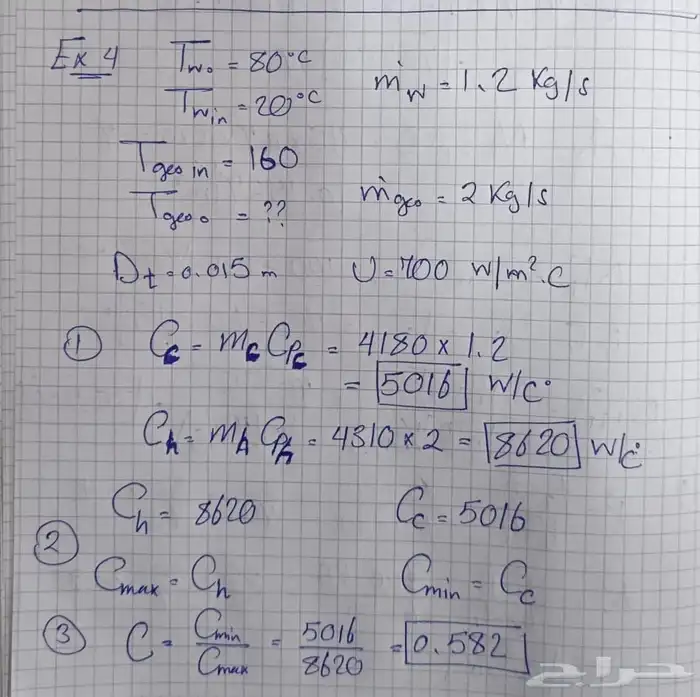 Ex 4 T_wo = 80°C ṁ_w = 1.2 Kg/s
T_win = 20°C
T_geo in = 160
T_geo o = ?? ṁ_geo = 2 Kg/s
D_t = 0.015 m U = 700 W/m².C
① C_c = m_c Cp_c = 4180 × 1.2
= 5016 W/C°
C_h = m_h Cp_h = 4310 × 2 = 8620 W/C°
② C_h = 8620 C_c = 5016
C_max = C_h C_min = C_c
③ C = C_min/C_max = 5016/8620 = 0.582
حراج